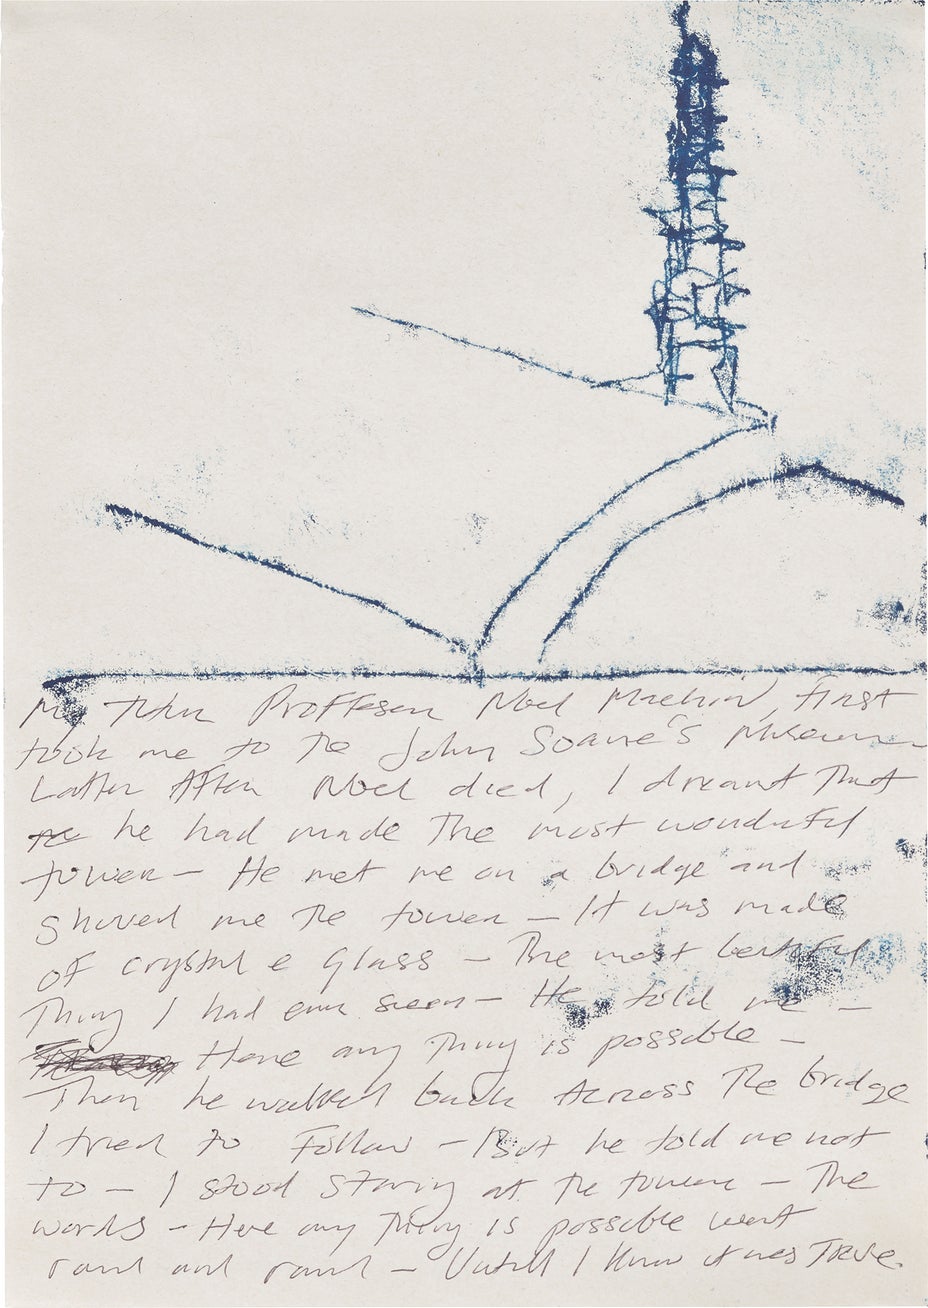 My tutor Proffesor Noel Machin, first
took me to the John Soane's Museum
Latter After Noel died, I dreamt that
he had made The most wonderful
tower – He met me on a bridge and
showed me the tower – It was made
of crystal e Glass – The most beutiful
Thing I had ever seen – He told me –
Here any Thing is possible –
Then he walked back Across The bridge
I tried to Follow – But he told me not
to – I stood Staring at the tower – The
words – Here any Thing is possible went
round and round – Untill I knew it was True.